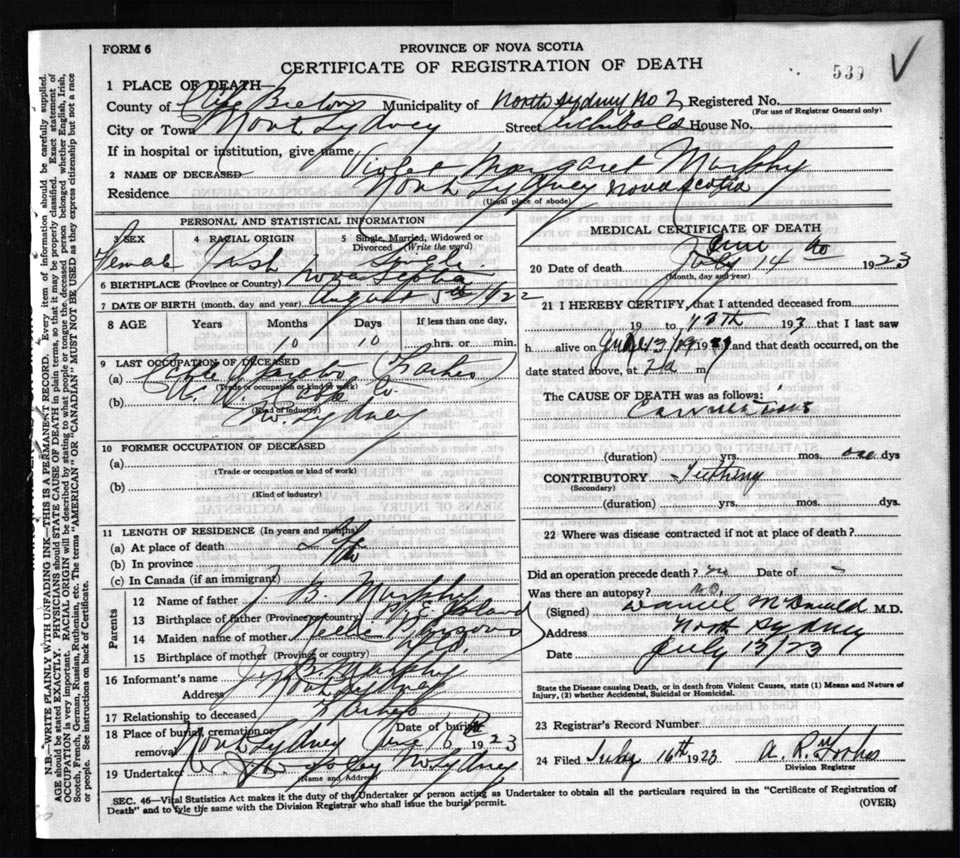 FORM 6
PROVINCE OF NOVA SCOTIA
CERTIFICATE OF REGISTRATION OF DEATH
539
1 PLACE OF DEATH
County of Cape Breton Municipality of North Sydney No 2 Registered No.
(For use of Registrar General only)
City or Town North Sydney Street Archibald House No.
If in hospital or institution, give name
2 NAME OF DECEASED Violet Margaret Murphy
Residence North Sydney Nova Scotia
(Usual place of abode)
PERSONAL AND STATISTICAL INFORMATION
3 SEX 4 RACIAL ORIGIN 5 Single, Married, Widowed or Divorced (Write the word)
Female Irish Single
6 BIRTHPLACE (Province or Country) Nova Scotia
7 DATE OF BIRTH (month, day and year) August 5th 1922
8 AGE Years Months Days If less than one day,
10 10 hrs. or min.
9 LAST OCCUPATION OF DECEASED
(a) (Father)
(Trade or occupation or kind of work)
(b) Co
(Kind of industry)
No. Sydney
10 FORMER OCCUPATION OF DECEASED
(a)
(Trade or occupation or kind of work)
(b)
(Kind of industry)
11 LENGTH OF RESIDENCE (In years and months)
(a) At place of death
(b) In province
(c) In Canada (if an immigrant)
Parents
12 Name of father J. B. Murphy
13 Birthplace of father (Province or country) P. E. Island
14 Maiden name of mother
15 Birthplace of mother (Province or country)
16 Informant's name J. B. Murphy
Address North Sydney
17 Relationship to deceased Father
18 Place of burial, cremation or removal North Sydney Date of burial 16 1923
19 Undertaker No Sydney
(Name and Address)
MEDICAL CERTIFICATE OF DEATH
20 Date of death July 14 1923
(Month, day and year)
21 I HEREBY CERTIFY, that I attended deceased from
19 to 13th 193 that I last saw
h alive on 13/19 and that death occurred, on
date stated above, at 2a m
The CAUSE OF DEATH was as follows:
Convulsions
(duration) yrs. mos. one dys
CONTRIBUTORY Teething
(Secondary)
(duration) yrs. mos. dys.
22 Where was disease contracted if not at place of death?
Did an operation precede death? no Date of
Was there an autopsy? no.
(Signed) Daniel McDonald M.D.
Address North Sydney
Date July 13/23
State the Disease causing Death, or in death from Violent Causes, state (1) Means and Nature of Injury, (2) whether Accidental, Suicidal or Homicidal.
23 Registrar's Record Number
24 Filed July 16th 1923 A. R. Forbes
Division Registrar
SEC. 46—Vital Statistics Act makes it the duty of the Undertaker or person acting as Undertaker to obtain all the particulars required in the "Certificate of Registration of
Death" and to file the same with the Division Registrar who shall issue the burial permit.
(OVER)
N.B.—WRITE PLAINLY WITH UNFADING INK—THIS IS A PERMANENT RECORD. Every item of information should be carefully supplied.
AGE should be stated EXACTLY. PHYSICIANS should STATE CAUSE OF DEATH in plain terms, so that it may be properly classified. Exact statement of
OCCUPATION is very important. RACIAL ORIGIN will be described by stating to what people or tongue the deceased person belonged whether English, Irish,
Scotch, French, German, Russian, Ruthenian, etc. The terms "AMERICAN" OR "CANADIAN" MUST NOT BE USED as they express citizenship but not a race
or people. See instructions on back of Certificate.